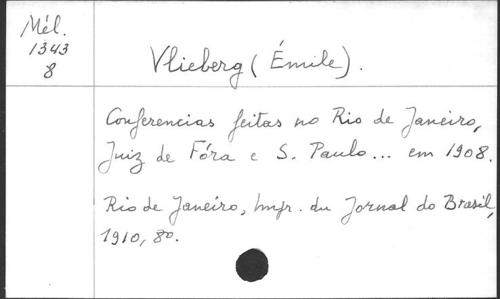 Mél.
1343
8
Vlieberg (Émile).
Conferencias feitas no Rio de Janeiro,
Juiz de Fóra e S. Paulo... em 1908.
Rio de Janeiro, Impr. du Jornal do Brasil,
1910, 8o.